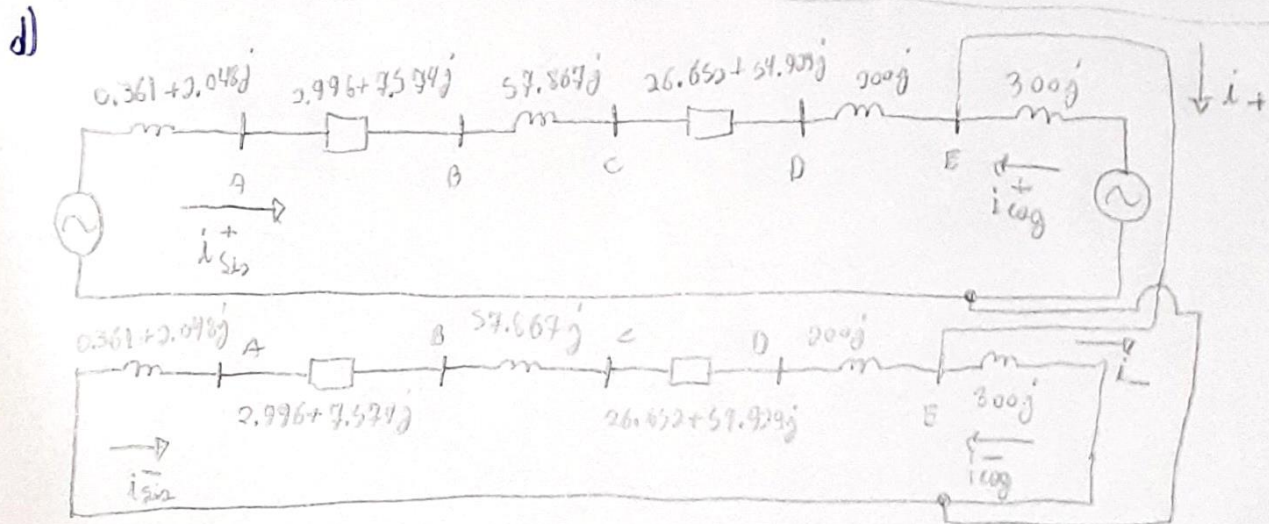 d)
0.361+2.048j 2.996+7.574j 57.867j 26.652+54.929j 200j 300j i+
A B C D E
i+sis i+cog
0.361+2.048j A B 57.867j C D 200j i-
2.996+7.574j 26.652+54.929j E 300j
i-sis i-cog